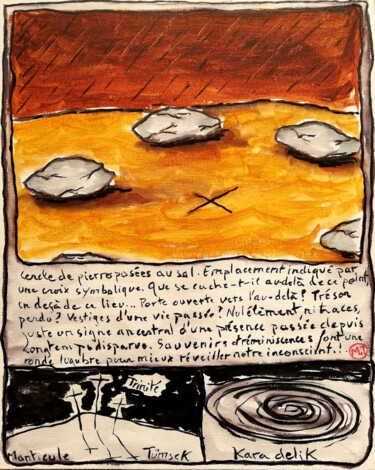 Cercle de pierre posées au sol. Emplacement indiqué par
une croix symbolique. Que se cache-t-il au delà de ce point,
en deçà de ce lieu... Porte ouverte vers l'au-delà? Trésor
perdu? Vestiges d'une vie passée? Nul élément ni traces,
juste un signe ancestral d'une présence passée depuis
longtemps disparue. Souvenirs et réminiscences font une
ronde lugubre pour mieux réveiller notre inconscient...
Trinité
Monticule Tümsek Kara delik